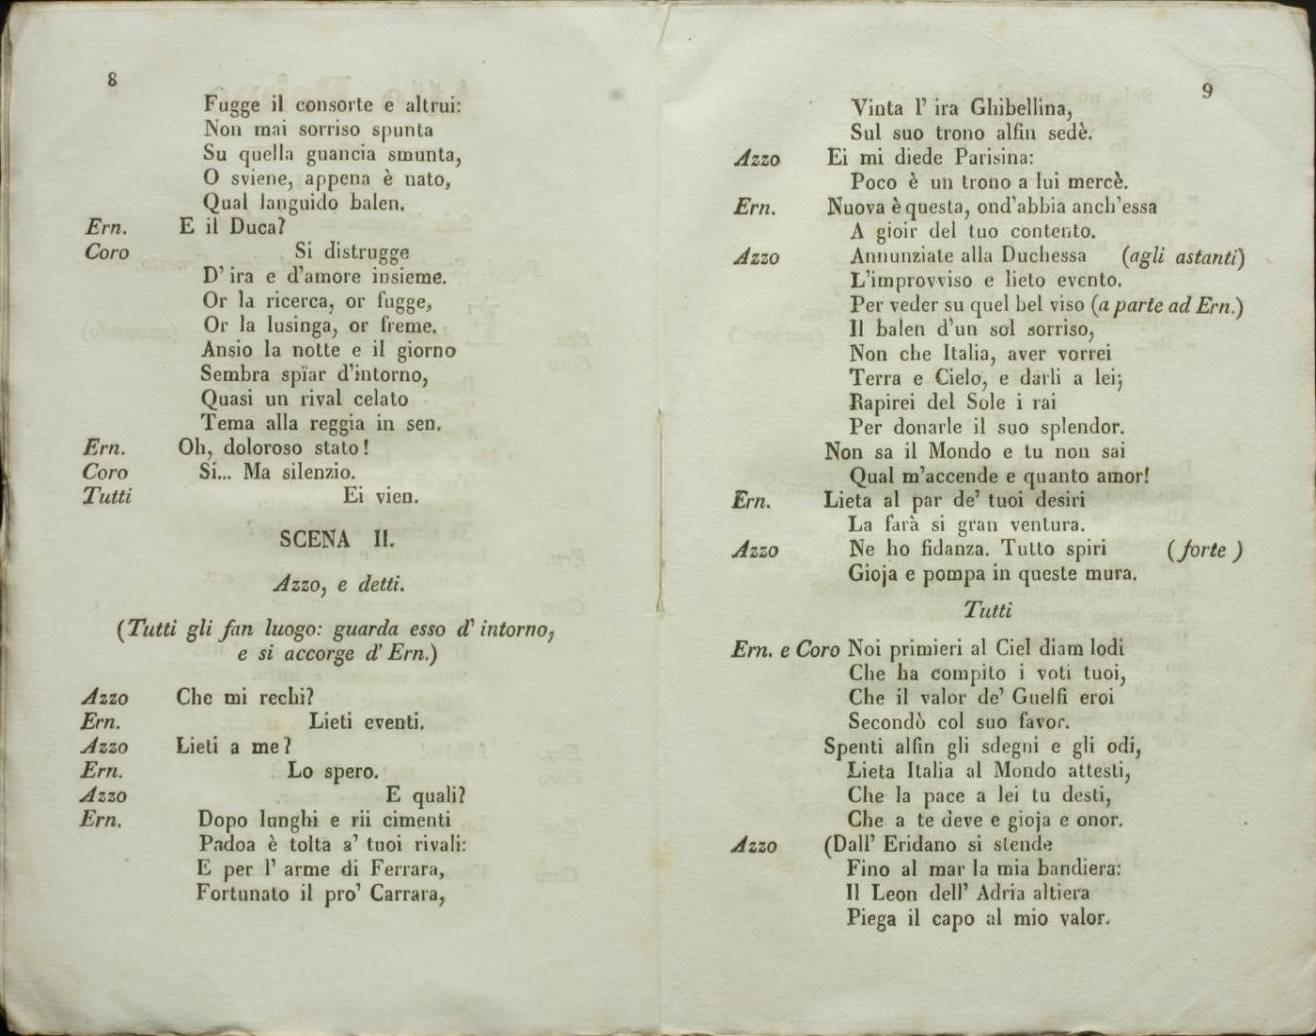 8
Fugge il consorte e altrui:
Non mai sorriso spunta
Su quella guancia smunta,
O sviene, appena è nato,
Qual languido balen.
Ern. E il Duca?
Coro Si distrugge
D' ira e d'amore insieme.
Or la ricerca, or fugge,
Or la lusinga, or freme.
Ansio la notte e il giorno
Sembra spïar d'intorno,
Quasi un rival celato
Tema alla reggia in sen.
Ern. Oh, doloroso stato!
Coro Si... Ma silenzio.
Tutti Ei vien.
SCENA II.
Azzo, e detti.
(Tutti gli fan luogo: guarda esso d' intorno,
e si accorge d' Ern.)
Azzo Che mi rechi?
Ern. Lieti eventi.
Azzo Lieti a me?
Ern. Lo spero.
Azzo E quali?
Ern. Dopo lunghi e rii cimenti
Padoa è tolta a' tuoi rivali:
E per l' arme di Ferrara,
Fortunato il pro' Carrara,
9
Vinta l' ira Ghibellina,
Sul suo trono alfin sedè.
Azzo Ei mi diede Parisina:
Poco è un trono a lui mercè.
Ern. Nuova è questa, ond'abbia anch'essa
A gioir del tuo contento.
Azzo Annunziate alla Duchessa (agli astanti)
L'improvviso e lieto evento.
Per veder su quel bel viso (a parte ad Ern.)
Il balen d'un sol sorriso,
Non che Italia, aver vorrei
Terra e Cielo, e darli a lei;
Rapirei del Sole i rai
Per donarle il suo splendor.
Non sa il Mondo e tu non sai
Qual m'accende e quanto amor!
Ern. Lieta al par de' tuoi desiri
La farà si gran ventura.
Azzo Ne ho fidanza. Tutto spiri (forte )
Gioja e pompa in queste mura.
Tutti
Ern. e Coro Noi primieri al Ciel diam lodi
Che ha compito i voti tuoi,
Che il valor de' Guelfi eroi
Secondò col suo favor.
Spenti alfin gli sdegni e gli odi,
Lieta Italia al Mondo attesti,
Che la pace a lei tu desti,
Che a te deve e gioja e onor.
Azzo (Dall' Eridano si stende
Fino al mar la mia bandiera:
Il Leon dell' Adria altiera
Piega il capo al mio valor.